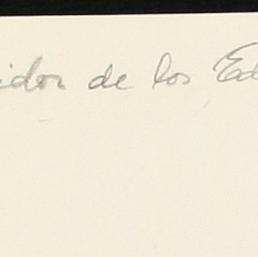 idor de los Ed